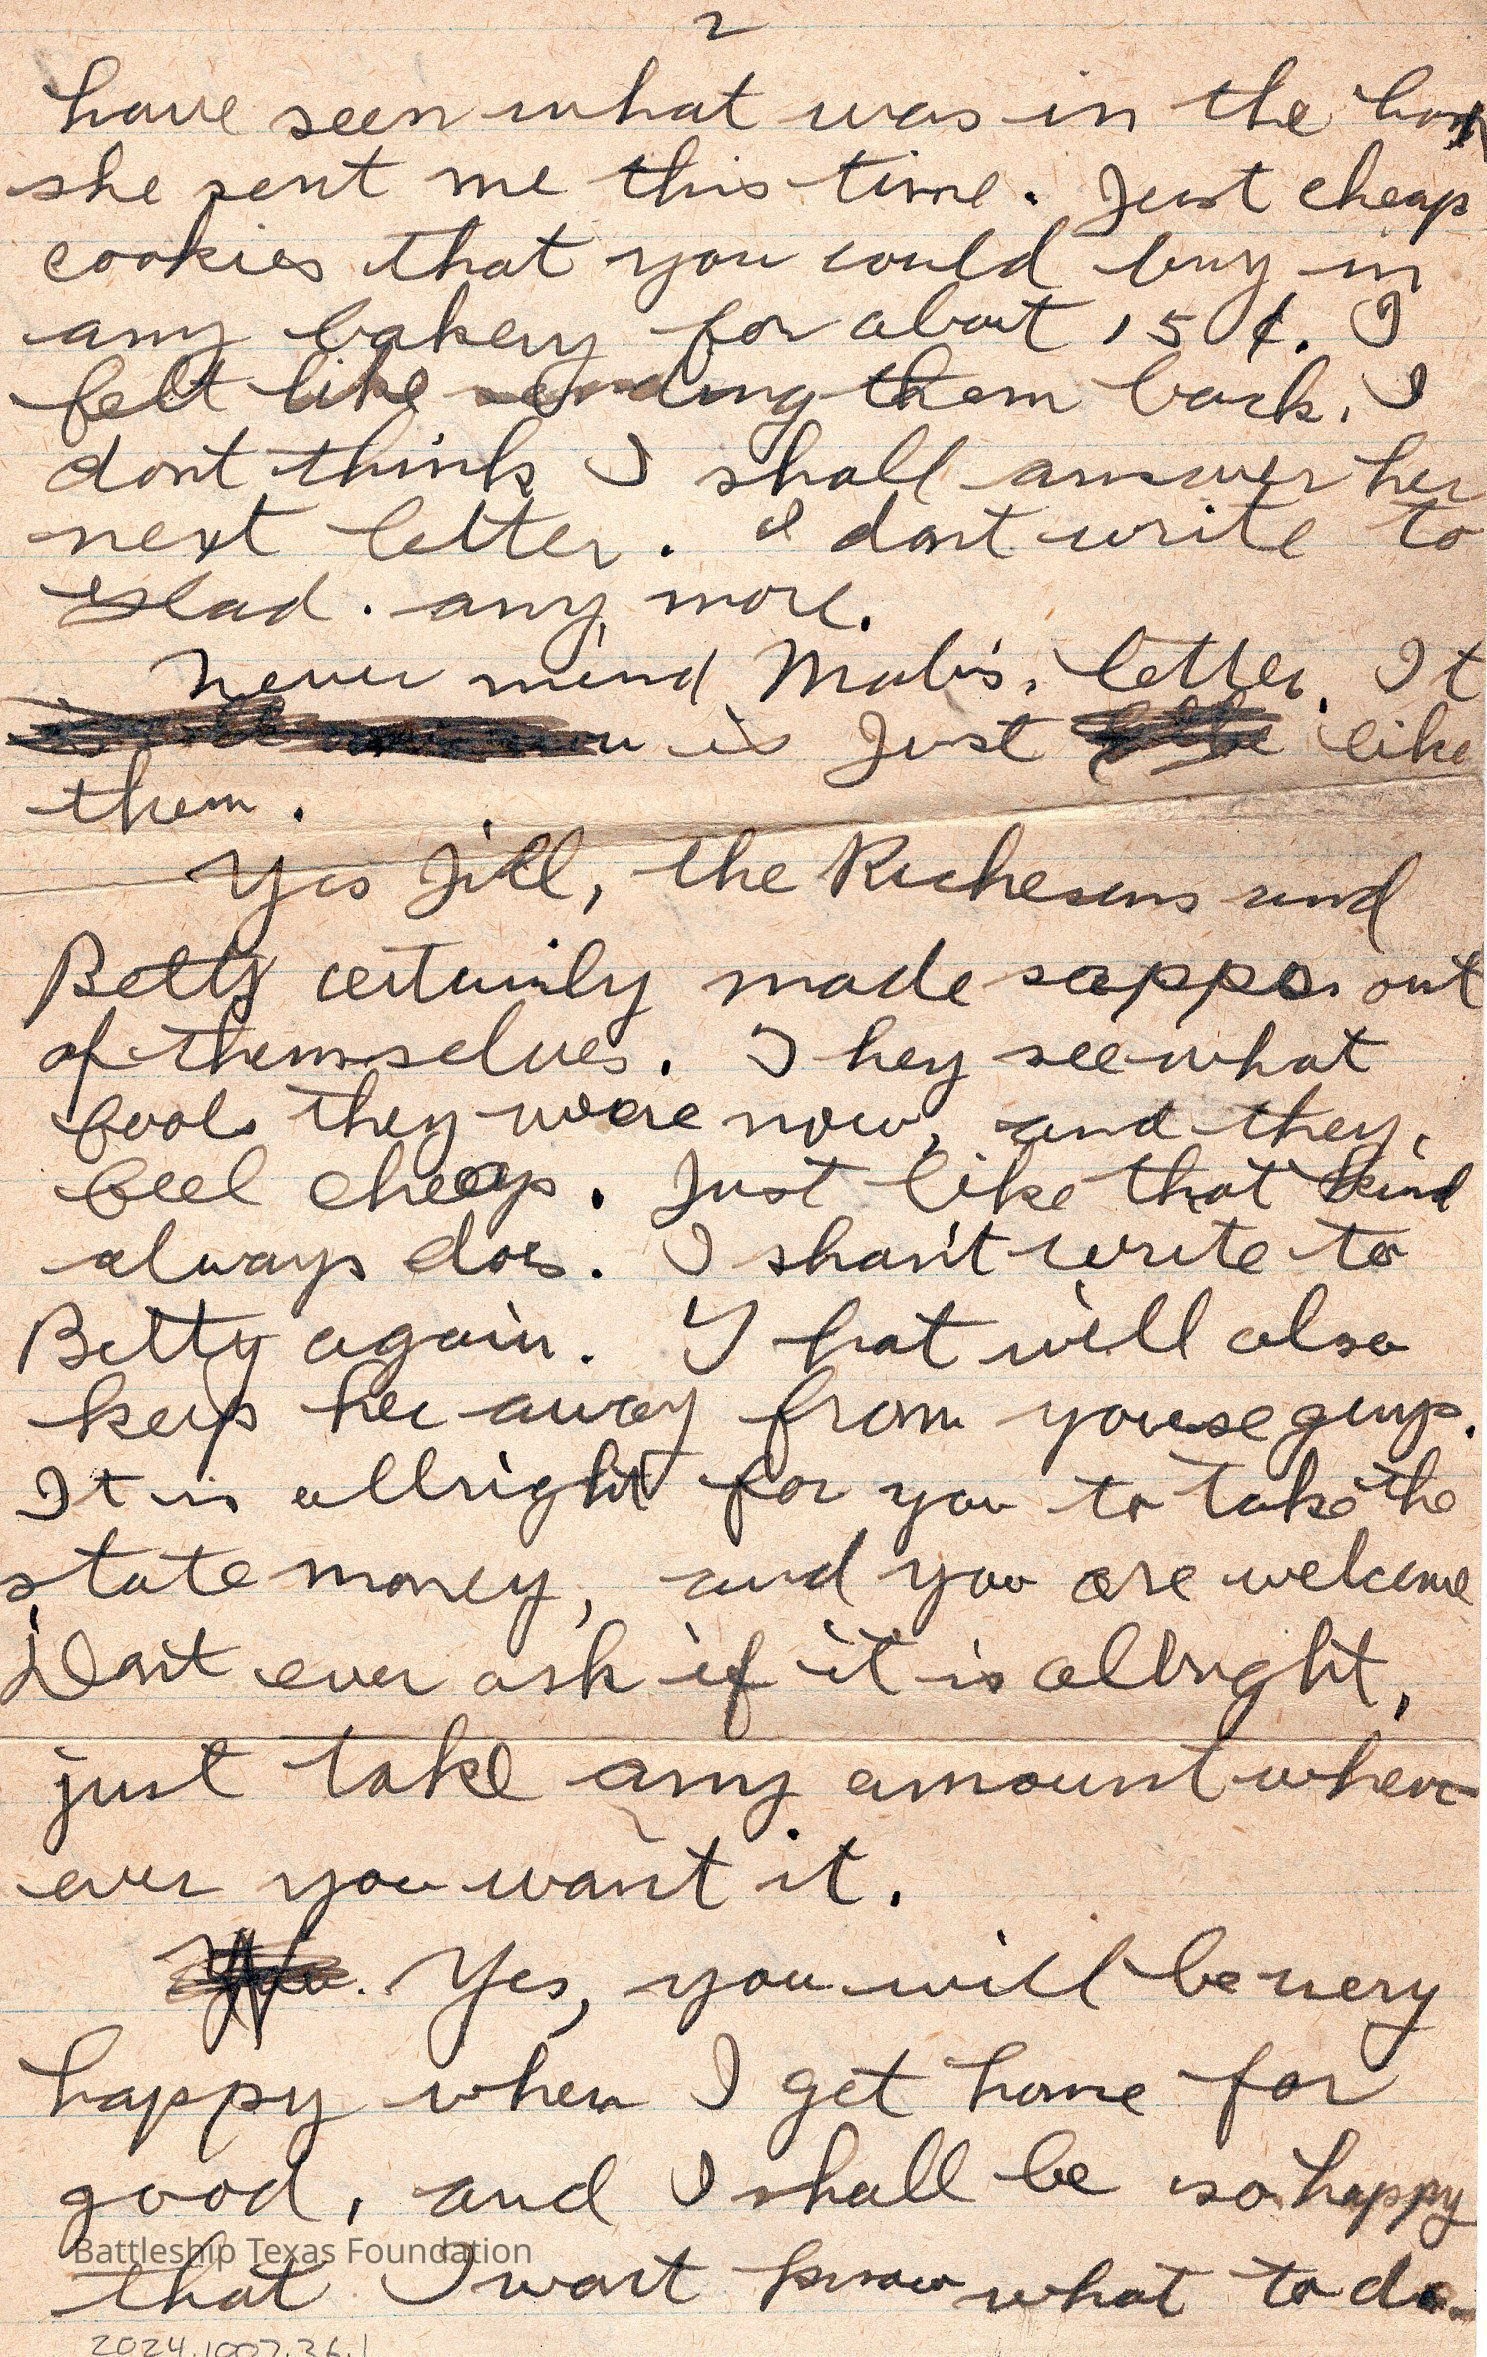 2
have seen what was in the box
she sent me this time. Just cheap
cookies that you could buy in
any bakery for about 15¢. I
felt like sending them back. I
dont think I shall answer her
next letter. I dont write to
Glad. any more.
Never mind Mab's. letter. It
is Just like
them.
Yes Jill, the Richesons and
Betty certainly made sapps out
of themselves. They see what
fools they were now, and they,
feel cheap. Just like that kind
always does. I shan't write to
Betty again. That will also
keep her away from youse guys.
It is allright for you to take the
state money, and you are welcome
Don't ever ask if it is allright,
just take any amount when
ever you want it.
Yes, you will be very
happy when I get home for
good, and I shall be so happy
Battleship Texas Foundation
that I wont know what to do.
2024.1007.36.1